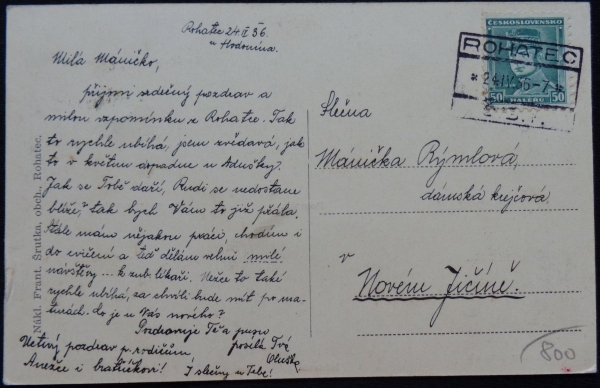 Rohatec 24.IV.36.
u Hodonína.
Milá Máničko,
přijmi srdečný pozdrav a
milou vzpomínku z Rohatce. Tak
to rychle ubíhá, jsem zvědavá, jak
to v květnu dopadne u Adušky.
Jak se Tobě daří, Rudi se nedostane
blíže, tak bych Vám to již přála.
Stále mám nějakou práci, chodím i
do cvičení a teď dělám velmi milé
návštěvy ... k zub. lékaři. Večce to také
rychle ubíhá, za chvíli bude mít po ma-
turách. Co je u Vás nového?
Pozdravuje Tě a pusu
posílá Tvá
Oluška
Uctivý pozdrav p. rodičům,
Anežce i bratříčkovi! I slečny u Tebe!
Nákl. Frant. Šrutka, obch., Rohatec.
ČESKOSLOVENSKO
50 HALÉŘŮ 50
ROHATEC
*24.IV.36-7*
Slečna
Mánička Rýmlová,
dámská krejčová,
v
Novém Jičíně.
800